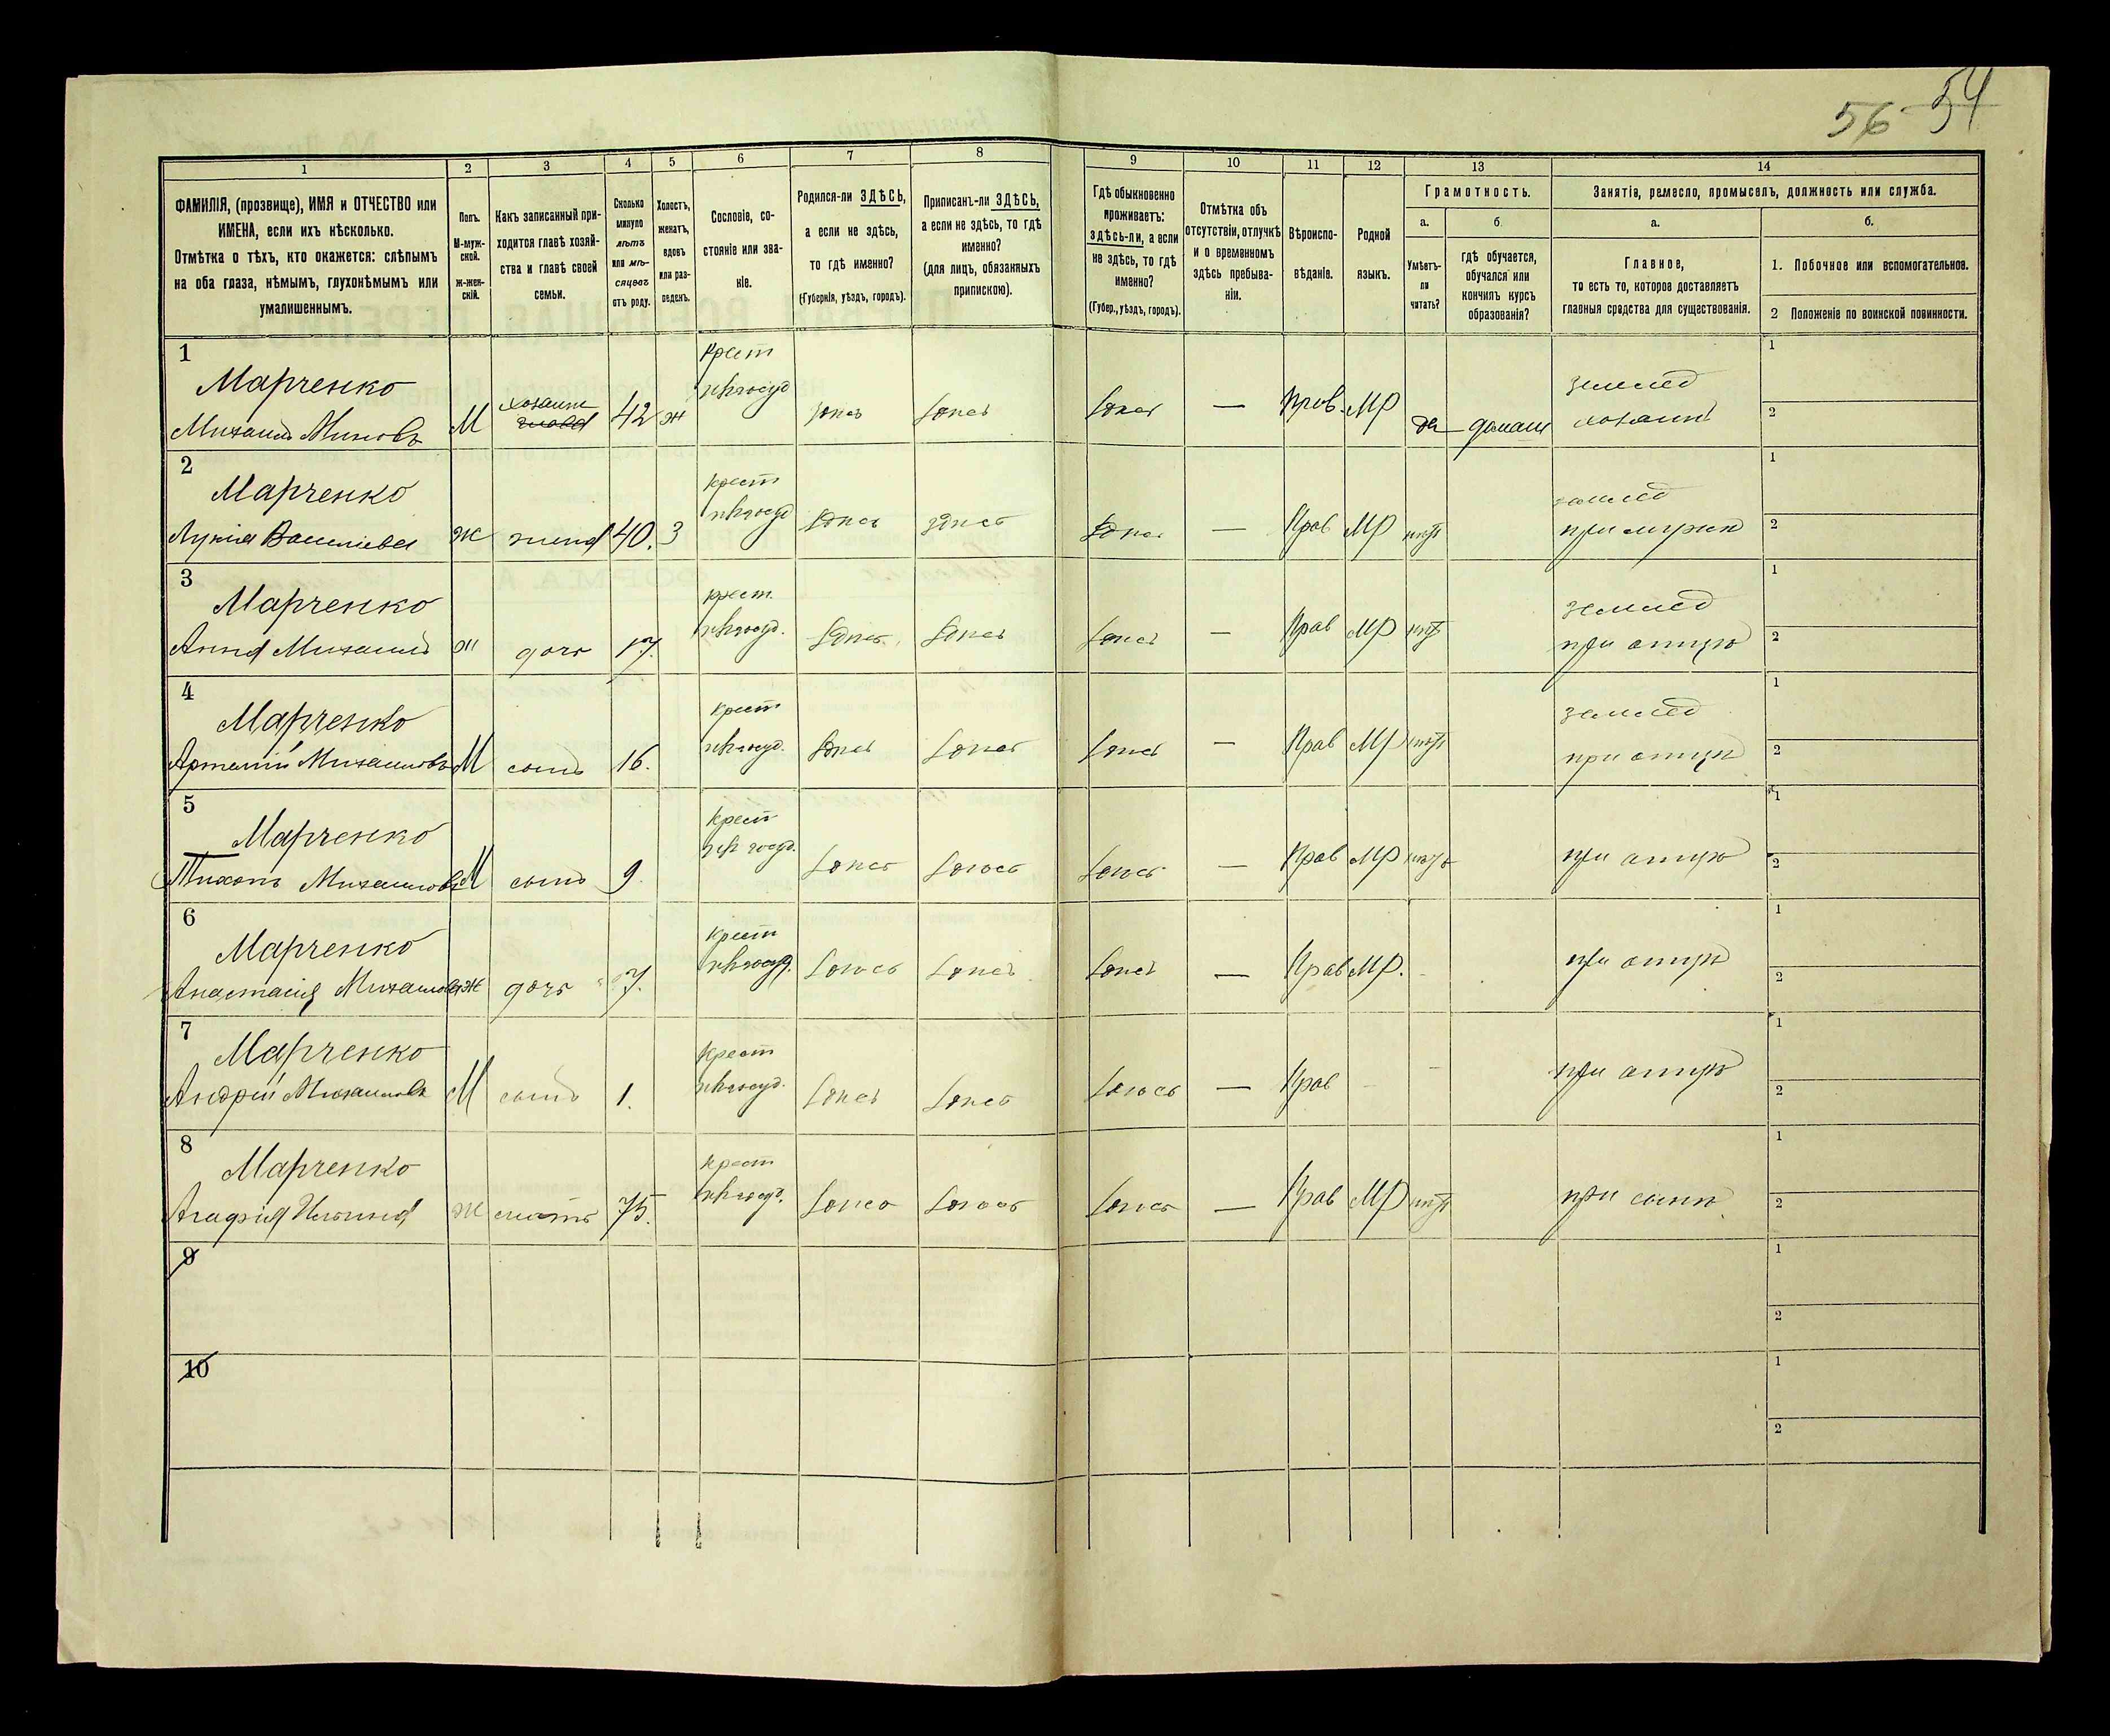 56 54
1 2 3 4 5 6 7 8 9 10 11 12 13 14
ФАМИЛІЯ, (прозвище), ИМЯ и ОТЧЕСТВО или
ИМЕНА, если ихъ нѣсколько.
Отмѣтка о тѣхъ, кто окажется: слѣпымъ
на оба глаза, нѣмымъ, глухонѣмымъ или
умалишеннымъ.
Полъ.
М-муж-
ской.
ж-жен-
скій.
Какъ записанный при-
ходится главѣ хозяй-
ства и главѣ своей
семьи.
Сколько
минуло
лѣтъ
или мѣ-
сяцевъ
отъ роду.
Холостъ,
женатъ,
вдовъ
или раз-
веденъ.
Сословіе, со-
стояніе или зва-
ніе.
Родился-ли ЗДѢСЬ,
а если не здѣсь,
то гдѣ именно?
(Губернія, уѣздъ, городъ).
Приписанъ-ли ЗДѢСЬ,
а если не здѣсь, то гдѣ
именно?
(для лицъ, обязанныхъ
припискою).
Гдѣ обыкновенно
проживаетъ:
здѣсь-ли, а если
не здѣсь, то гдѣ
именно?
(Губер., уѣздъ, городъ).
Отмѣтка объ
отсутствіи, отлучкѣ
и о временномъ
здѣсь пребыва-
ніи.
Вѣроиспо-
вѣданіе.
Родной
языкъ.
Грамотность.
а.
Умѣетъ-
ли
читать?
б.
гдѣ обучается,
обучался или
кончилъ курсъ
образованія?
Занятіе, ремесло, промыселъ, должность или служба.
а.
Главное,
то есть то, которое доставляетъ
главныя средства для существованія.
б.
1. Побочное или вспомогательное.
2 Положеніе по воинской повинности.
1 крест землед 1
Марченко хозяинъ
Михаилъ Миновъ М 42 ж здесь здесь здесь — Прав. МР да домаш хозяинъ 2
2 крест землед 1
Марченко
Лукія Василіева Ж жена 40. З здесь здесь здесь — Прав МР нѣтъ при мужѣ 2
3 крест. землед 1
Марченко
Анна Михаилъ ж дочь 17. здесь здесь здесь — Прав МР нѣтъ при отцѣ 2
4 крест землед 1
Марченко
Артемій Михаиловъ М сынъ 16. здесь здесь здесь — Прав МР нѣтъ при отцѣ 2
5 крест 1
Марченко
Тихонъ Михаиловъ М сынъ 9 здесь здесь здесь — Прав МР нѣтъ при отцѣ 2
6 крест 1
Марченко
Анастасія Михаилова Ж дочь 7. здесь здесь здесь — Прав МР. при отцѣ 2
7 крест 1
Марченко
Андрей Михаиловъ М сынъ 1. здесь здесь здесь — Прав при отцѣ 2
8 крест 1
Марченко
Агафія Ильина Ж мать 75. здесь здесь здесь — Прав МР нѣтъ при сынѣ 2
9 1
2
10 1
2